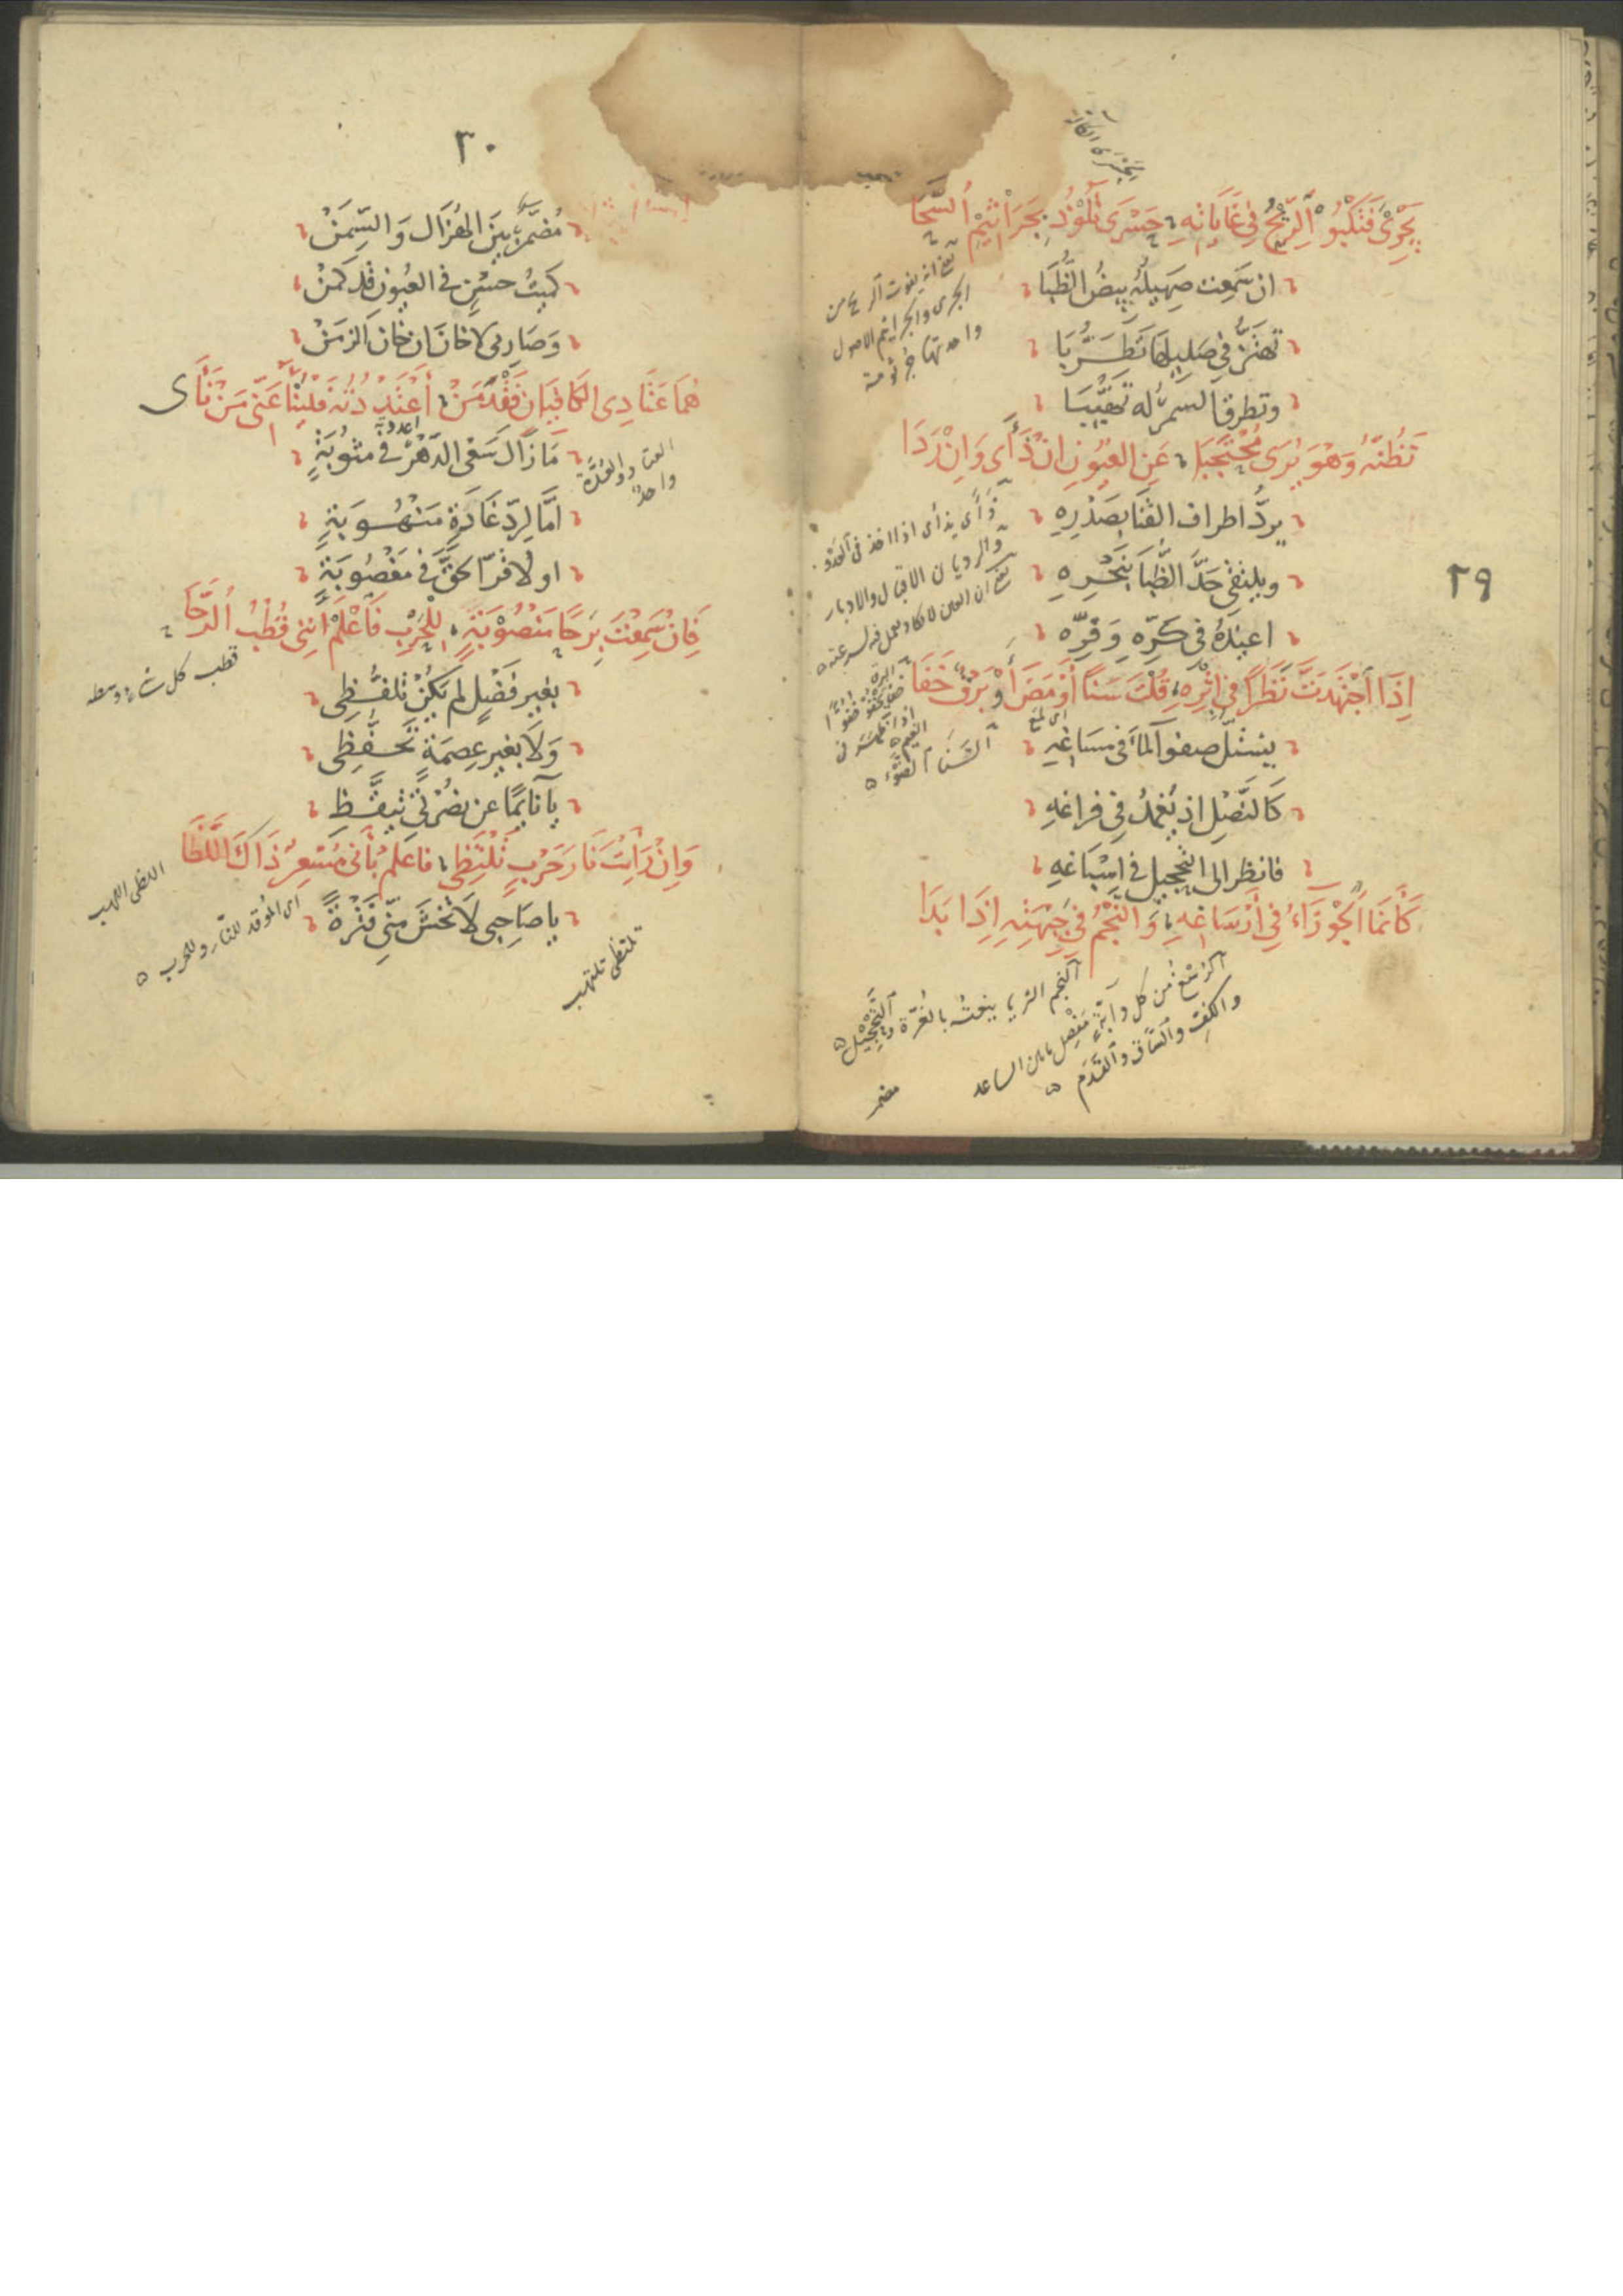 ٢٩
يَجْرِي فَتَكْبُو الرِّيحُ فِي غَايَاتِهِ حَسْرَى تَلُوذُ بِجَرَاثِيمِ السَّحَا
ان سمعت صهيله بيض الظُّبَا
تهتزّ في صليلها تَطَرُّبَا
وتطرق السمر له تهيّبَا
تَظُنُّهُ وَهُوَ يُرَى مُحْتَجِبًا عَنِ العُيُونِ اِنْ ذَأَى وَاِنْ رَدَا
يردُّ اطراف القَنَا بصَدْرِهِ
ويلتقي حَدَّ الظُّبَا بِنَحْرِهِ
اعيذهُ في كَرِّه وَفَرِّه
اِذَا اجْتَهَدتَ نَظَرًا فِي اِثْرِهِ قُلْتَ سَنًا أَوْمَضَ أَوْ بَرْقٌ خَفَا
ينسلّ صفو المآء في مساغِهِ
كَالنَّصْلِ اذ يُغمدُ في فراغهِ
فانظر الى التحجيل في اسْبَاغهِ
كَأَنَّمَا الجَوْزَاءُ فِي أَرْسَاغِهِ وَالنَّجْمُ فِي جَبْهَتِهِ اِذَا بَدَا
يعني انه يفوت الريح من
الجرى والجراثيم الاصول
واحدتها جُرثومة
ذَأَى يذأى اذا اخذ في العَدْو
والرديان الاقبال والادبار
اى لمع
السَّنَا الضَّوْء
النجم الثريا ينعته بالغُرّة والتَّحْجِيْل
الرُسْغ من كل دآبّةٍ مَفْصِل ما بين الساعد
والكفّ والسّاق والقَدَم
مضمر
٣٠
مُضَمَّرٌ بين الهُزَال وَالسِّمَنْ
كميتُ حسْنٍ في العيون قد كمنْ
وَصَارمى لا خانَ ان خان الزمَنْ
هُمَا عَتَادِى الكَافِيَانِ فَقْدَ مَنْ أَعْتَدْدُتُه فَلْيَنْأَ عَنِّى مَنْ نَأَى
مَا زَال سَعْى الدّهْر في مثُوبَةٍ
امَّا لِردّ غَادَةٍ مَنْهُوبَةٍ
او لافترا حَقٍّ في مغْصُوبَةٍ
فَاِنْ سَمِعْتَ بِرَحًا مَنْصُوْبَةٍ لِلْحَرْبِ فَاعْلَمْ اَنَّنِى قُطْبُ الرَّحَا
بغير فَضْلٍ لم يَكُنْ تلفُّظِى
وَلَا بغير عِصمَةٍ تَحفُّظِى
يا نايمًا عن نصْرَتى تيقَّظِ
وَاِنْ رَاَيْتَ نَارَ حَرْبٍ تَلْتَظِى فاعلمْ بأنى مُسْعِرٌ ذَاكَ اللَّظَا
يا صَاحِبى لَا تخشَ مِنّى فَتْرةً
العتاد والعُدَّة
واحدٌ
قطب كل شئ وسطه
اللظى اللهب
اى الموقد للنّار والحرب
تلتظى تلتهب